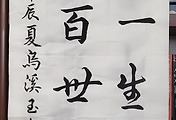 一生
百世
辰夏乌溪玉